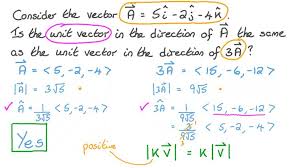 Consider the vector A⃗ = 5î - 2ĵ - 4k̂
Is the unit vector in the direction of A⃗ the same
as the unit vector in the direction of 3A⃗ ?
A⃗ = < 5, -2, -4 >
|A⃗| = 3√5
✓ Â = 1/(3√5) < 5, -2, -4 >
Yes
3A⃗ = < 15, -6, -12 >
|3A⃗| = 9√5
✓ 3Â = 1/(9√5) < 15, -6, -12 >
= 3/(9√5) < 5, -2, -4 >
positive
|KV⃗| = K|V⃗|